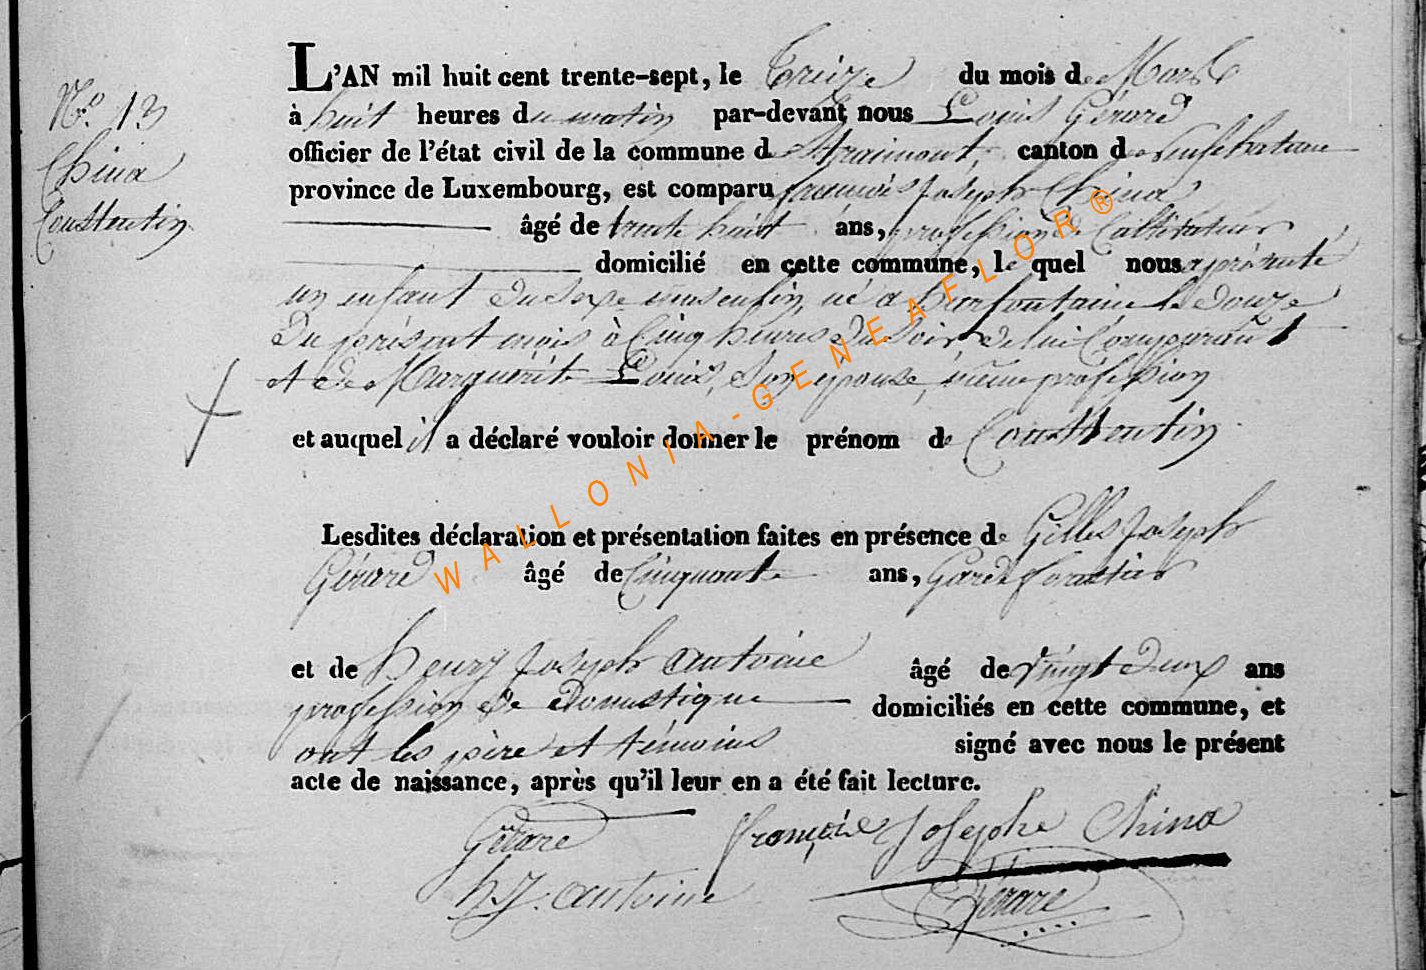 N.° 13
China
Constentin
L'AN mil huit cent trente-sept, le treize du mois de Mars
à huit heures du matin par-devant nous Louis Gérard
officier de l'état civil de la commune de Straimont, canton de neufchateau
province de Luxembourg, est comparu françois Joseph China
âgé de trente huit ans, profession de Cultivateur
domicilié en cette commune, le quel nous a présenté
un enfant du sexe masculin, né a Burfontaine le douze
du présent mois à Cinq heures du soir de lui Comparant
et de Marguerite Louis, son épouse, même profession
et auquel il a déclaré vouloir donner le prénom de Constentin
Lesdites déclaration et présentation faites en présence de Gilles Joseph
Gérard âgé de Cinquante ans, Garde forestier
et de henry Joseph antoine âgé de vingt deux ans
profession de domestique domiciliés en cette commune, et
ont les père et témoins signé avec nous le présent
acte de naissance, après qu'il leur en a été fait lecture.
Gérard françoise Josephe China
h J. antoine Gérard
WALLONIA-GENEAFLOR®